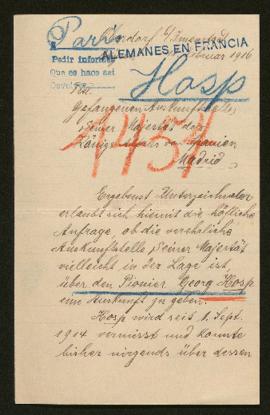 Paris
ALEMANES EN FRANCIA
Februar 1916
Pedir informes
Que se hace así
Hosp
An
Gefangenen Auskunftstelle,
Seiner Majestät des
Königs von Spanien
Madrid
Ergebenst Unterzeichneter
erlaubt sich hiermit die höfliche
Anfrage, ob die verehrliche
Auskunftstelle Seiner Majestät
vielleicht in der Lage ist,
über den Pionier Georg Hosp
eine Auskunft zu geben.
Hosp wird seit 1. Sept.
1914 vermisst und konnte
bisher nirgends über dessen